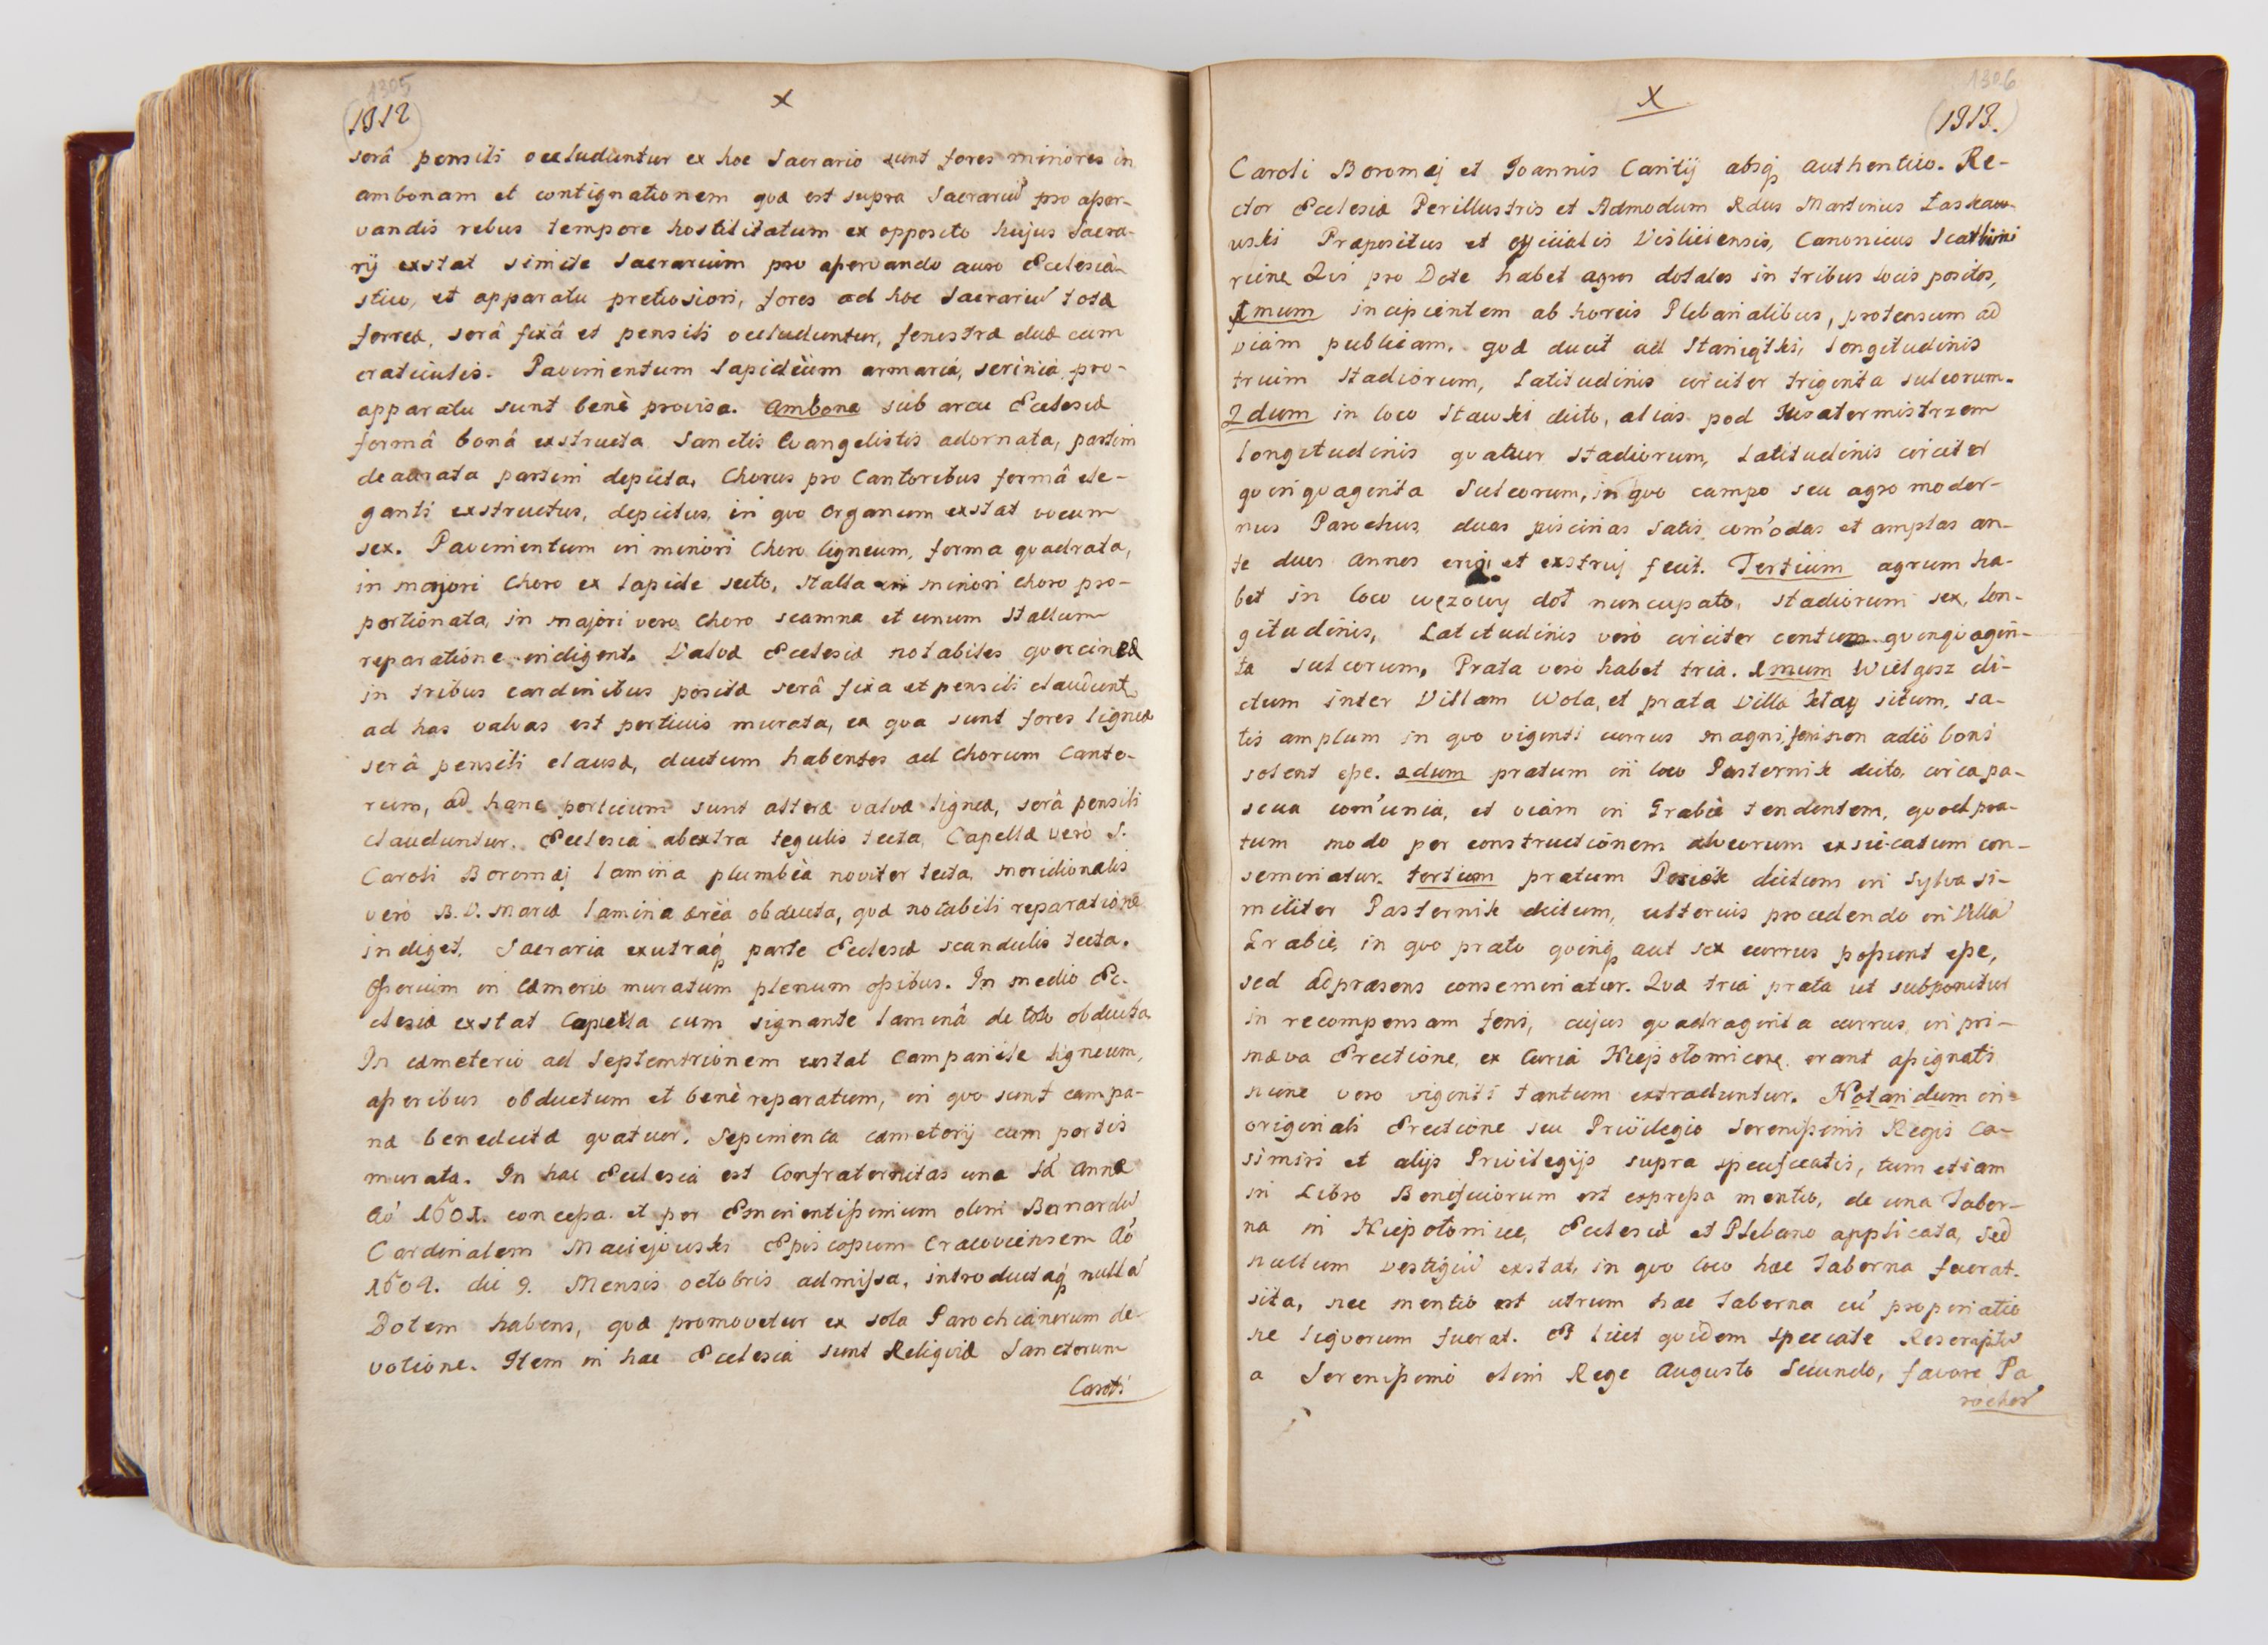 1305
(1312)
x
serâ pensili occluduntur ex hoc Sacrario sunt fores minores in
ambonam et contignationem quæ est supra Sacrariũ pro asser-
vandis rebus tempore hostilitatum ex opposito hujus Sacra-
rij exstat simile Sacrarium pro asservando auro Ecclesia-
stico, et apparatu pretiosiori, fores ad hoc Sacrariũ totæ
ferreæ, serâ fixâ et pensili occluduntur, fenestræ duæ cum
craticulis. Pavimentum lapideum armaria, scrinia pro
apparatu sunt benè provisa. Ambona sub arcu Ecclesiæ
formâ bonâ exstructa Sanctis Evangelistis adornata, partim
deaurata partim depicta, Chorus pro Cantoribus formâ ele-
ganti exstructus, depictus, in quo Organum exstat vocum
sex. Pavimentum in minori Choro ligneum, forma quadrata,
in majori Choro ex lapide secto, Stalla in minori choro pro-
portionata, in majori vero Choro scamna et unum Stallum
reparatione indigent. Valvæ Ecclesiæ notabiles quercineæ
in tribus cardinibus positæ serâ fixa et pensili clauduntr
ad has valvas est porticus murata, ex qua sunt fores ligneæ
serâ pensili clausæ, ductum habentes ad Chorum Canto-
rum, ad hanc porticum sunt alteræ valvæ ligneæ, serâ pensili
clauduntur. Ecclesia abextra tegulis tecta, Capellæ verò S.
Caroli Boromæj lamina plumbea noviter tecta, meridionalis
verò B. V. Mariæ lamina æreâ obducta, quæ notabili reparatione
indiget. Sacraria exutraq; parte Ecclesiæ scandulis tecta.
Ossorium in Cæmeterio muratum plenum ossibus. In medio Ec-
clesiæ exstat Capella cum signante laminâ de toto obducta
In cæmeterio ad Septemtrionem exstat Campanile ligneum,
asseribus obductum et benè reparatum, in quo sunt campa-
næ benedictæ quatuor. Sepimenta cæmeterij cum portis
murata. In hac Ecclesia est Confraternitas una Sæ Annæ
Aõ 1601. concessa et per Eminentissimum olim Bernardũ
Cardinalem Maciejowski Episcopum Cracoviensem Aõ
1604. die 9. Mensis octobris admissa, introductaq; nullã
Dotem habens, quæ promovetur ex sola Parochianorum de-
votione. Item in hac Ecclesia sunt Reliquiæ Sanctorum
Caroli
1306
x
(1313.)
Caroli Boromæj et Joannis Cantij absq; authentico. Re-
ctor Ecclesiæ Perillustris et Admodum Rdus Martinus
Præpositus et officialis Visliciensis, Canonicus
Qui pro Dote habet agros dotales in tribus locis positos,
1mum incipientem ab horreis Plebanalibus, protensum ad
viam publicam, quæ ducit ad Staniątki, longitudinis
trium Stadiorum, latitudinis circiter triginta sulcorum.
2dum in loco Stawki dicto, alias pod
longitudinis quatuor stadiorum, latitudinis circiter
quinquaginta Sulcorum, in quo campo seu agro moder-
nus Parochus, duas piscinas satis com̃odas et amplas an-
te duos annos erigi et exstrui fecit. Tertium agrum ha-
bet in loco wężowy doł nuncupato, stadiorum sex, lon-
gitudinis, Latitudinis verò circiter centum quinquagin-
ta sulcorum, Prata verò habet tria. 1mum Wielgosz di-
ctum inter Villam Wola, et prata Villæ Kłay situm, sa-
tis amplum in quo viginti currus magni fæni non adeò boni
solent esse. 2dum pratum in loco Pasternik dicto, circa pa-
scua com̃unia, et viam in Grabie tendentem, quod pra-
tum modo per constructionem alveorum exsiccatum con-
seminatur. tertium pratum dictum in Sylva si-
militer Pasternik dictum, ulterius procedendo in Villã
Grabie, in quo prato quinq; aut sex currus possunt esse,
sed adpræsens conseminatur. Quæ tria prata ut subponitur
in recompensam feni, cujus quadraginta currus, in pri-
mæva Erectione, ex Curia Niepołomicen. erant assignati
nunc vero viginti tantum extraduntur. Notandum in
originali Erectione seu Privilegio Serenissimi Regis Ca-
simiri et alijs Privilegijs supra specificatis, tum etiam
in Libro Beneficiorum est expressa mentio, de una Taber-
na in Niepołomice, Ecclesiæ et Plebano applicata, sed
nullum vestigiũ exstat, in quo loco hæc Taberna fuerat
sita, nec mentio est utrum hæc Taberna cũ propinatio
ne liquorum fuerat. Et licet quidem speciale Rescriptũ
a Serenissimo olim Rege Augusto Secundo, favore Pa
rochor̃